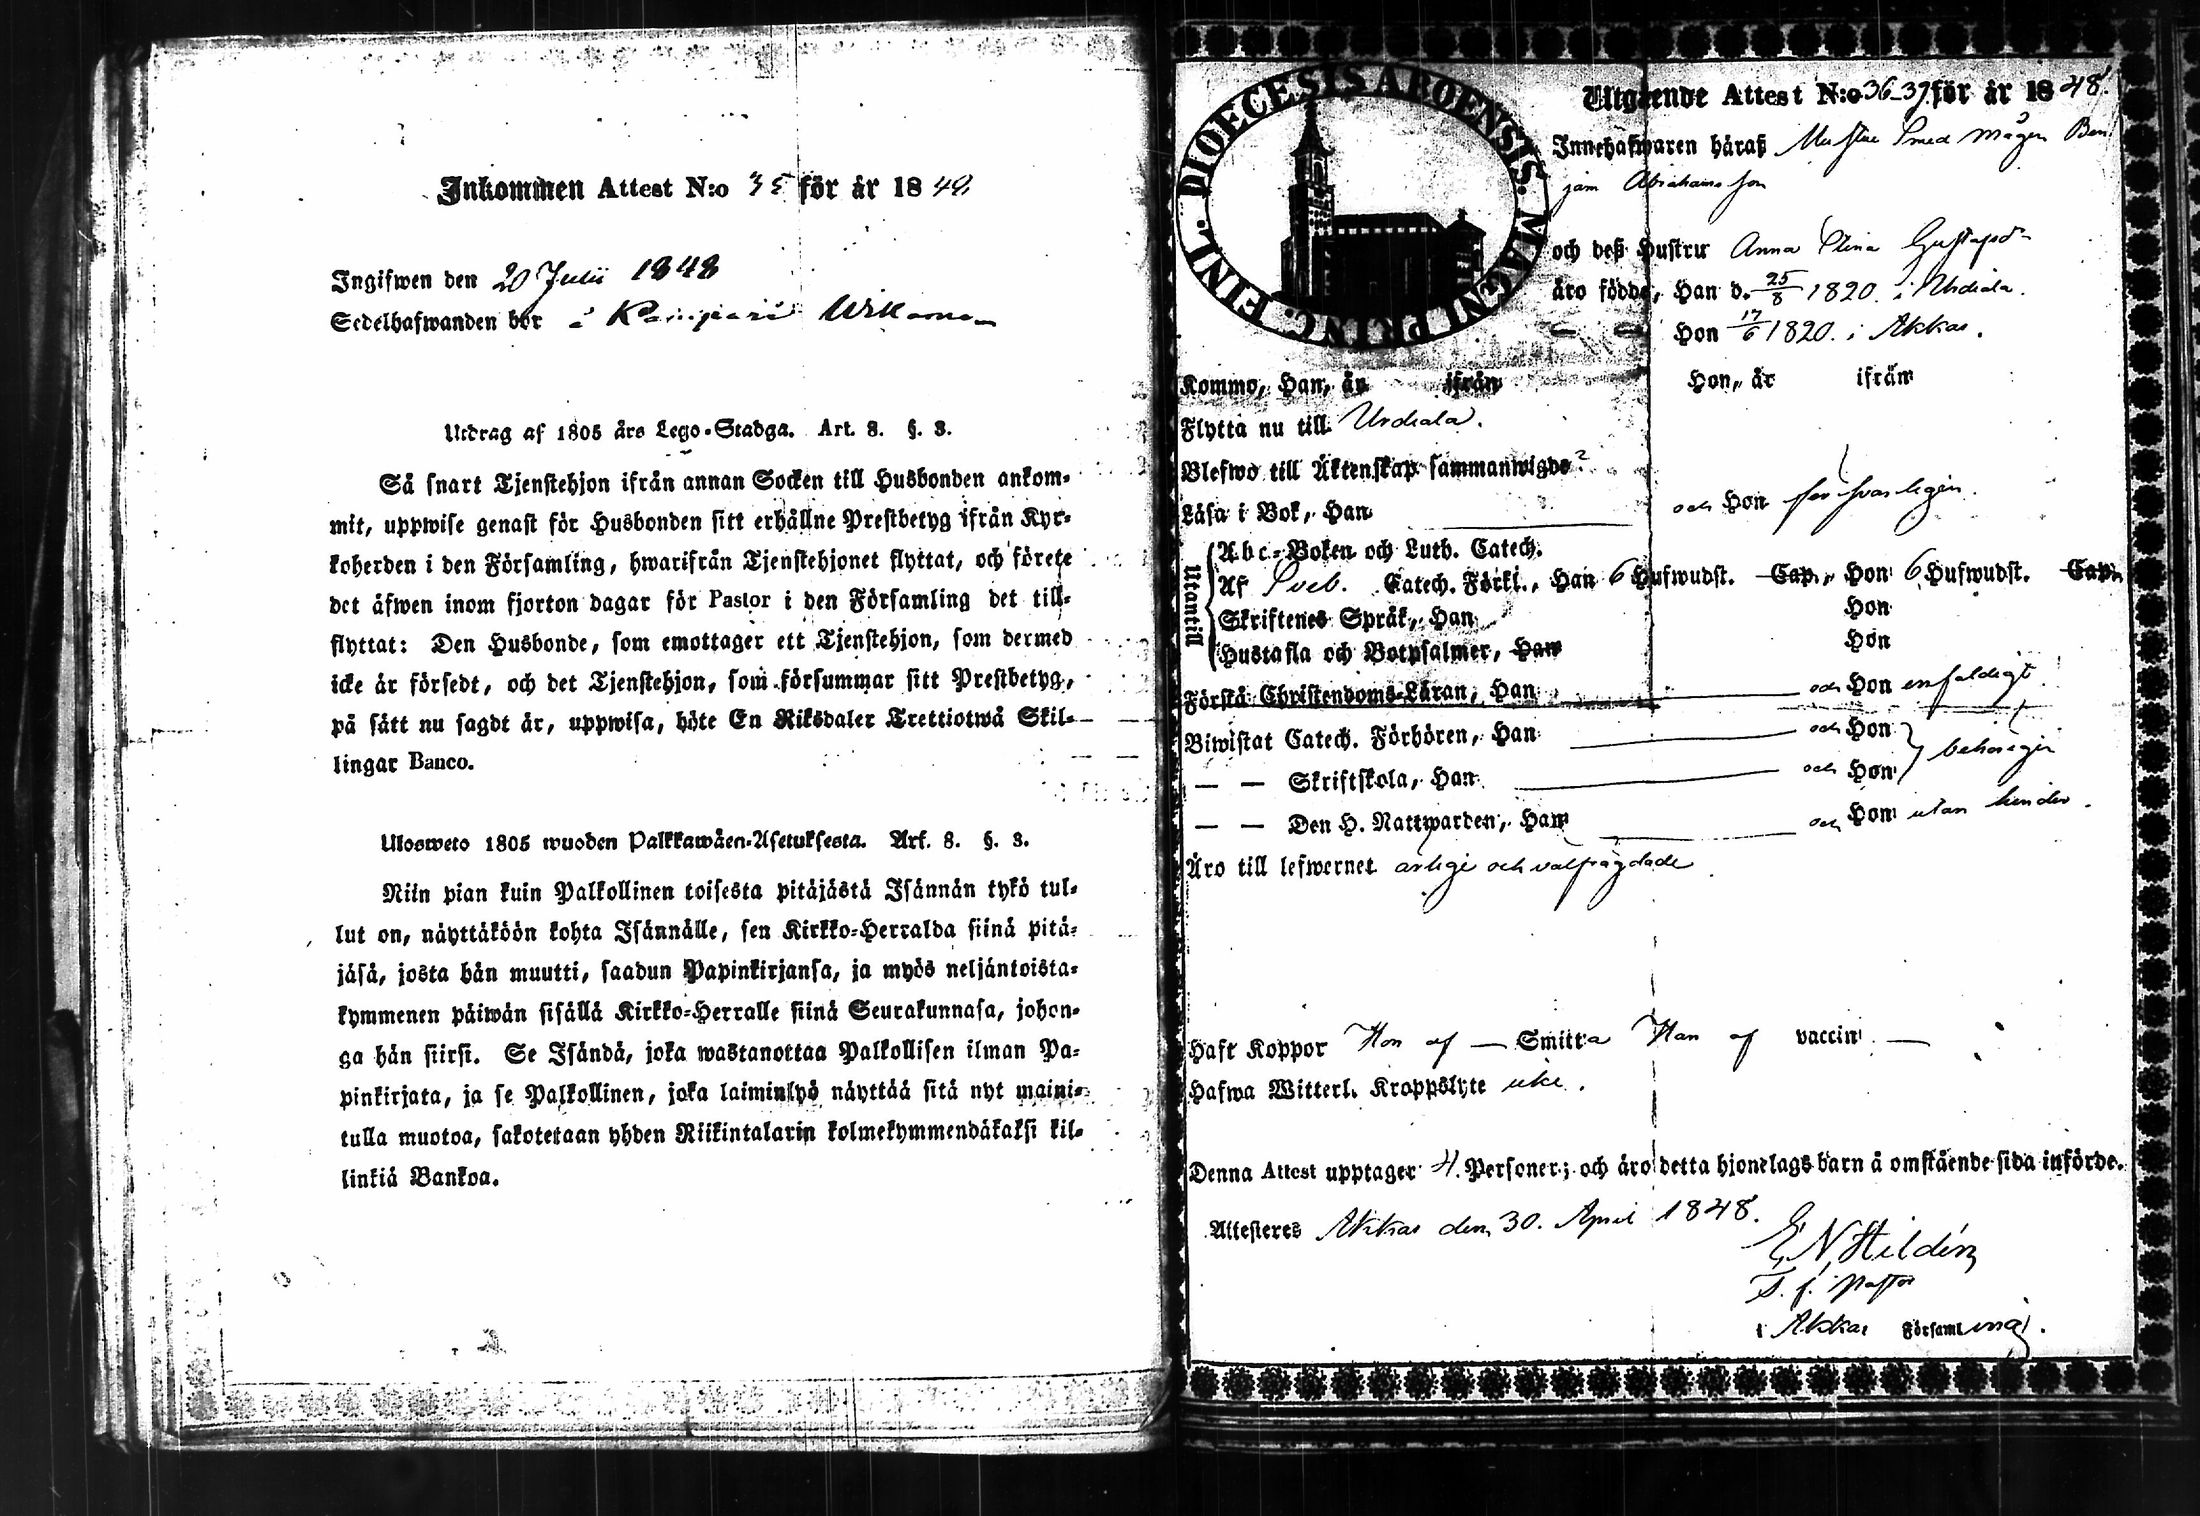 Inkommen Attest N:o 35 för år 1848.
Ingifwen den 20 Julii 1848
Sedelhafwanden bor i
Utdrag af 1805 års Lego-Stadga. Art. 8. §. 3.
Så snart Tjenstehjon ifrån annan Socken till Husbonden ankom-
mit, uppwise genast för Husbonden sitt erhållne Prestbetyg ifrån Kyr-
koherden i den Församling, hwarifrån Tjenstehjonet flyttat, och förete
det äfwen inom fjorton dagar för Pastor i den Församling det till-
flyttat: Den Husbonde, som emottager ett Tjenstehjon, som dermed
icke är försedt, och det Tjenstehjon, som försummar sitt Prestbetyg,
på sätt nu sagdt är, uppwisa, böte En Riksdaler Trettiotwå Skil-
lingar Banco.
Ulosweto 1805 wuoden Palkkawäen-Asetuksesta. Art. 8. §. 3.
Niin pian kuin Palkollinen toisesta pitäjästä Isännän tykö tul-
lut on, näyttäköön kohta Isännälle, sen Kirkko-Herralda siinä pitä-
jäsä, josta hän muutti, saadun Papinkirjansa, ja myös neljäntoista-
kymmenen päiwän sisällä Kirkko-Herralle siinä Seurakunnasa, johon-
ga hän siirsi. Se Isändä, joka wastanottaa Palkollisen ilman Pa-
pinkirjata, ja se Palkollinen, joka laiminlyö näyttää sitä nyt maini-
tulla muotoa, sakotetaan yhden Riikintalarin kolmekymmendäkaksi kil-
linkiä Bankoa.
DIOECESIS ABOENSIS. MAGNI PRINC. FINL.
Utgående Attest N:o 36-37 för år 1848.
Innehafwaren häraf Smed mågen Ben
jam Abrahamsson
och deß Hustru Anna Stina Gustafsdr
äro födde, Han d. 25/8 1820. i Urdiala.
— — Hon 17/6 1820. i Akkas.
Kommo, Han, år ifrån Hon, år ifrån
Flytta nu till Urdiala.
Blefwo till Äktenskap sammanwigde
Läsa i Bok, Han och Hon försvarligen.
Utantill
Abc-Boken och Luth. Catech.
Af Sveb. Catech. Förkl., Han 6 Hufwudst. Cap., Hon 6 Hufwudst. Cap.
Skriftenes Språk, Han Hon
Hustafla och Botpsalmer, Han Hon
Förstå Christendoms-Läran, Han och Hon enfaldigt.
Biwistat Catech. Förhören, Han och Hon
— — Skriftskola, Han och Hon behörigen
— — Den H. Nattwarden, Han och Hon utan hinder.
Äro till lefwernet ärlige och välfrägdade
Haft Koppor Hon af — Smitta Han af vaccin —
Hafwa Witterl. Kroppslyte icke.
Denna Attest upptager 4 Personer; och äro detta hjonelags barn å omstående sida införde.
Attesteres Akkas den 30. April 1848.
E N Hildén
T. f. Pastor
i Akkas Församling.